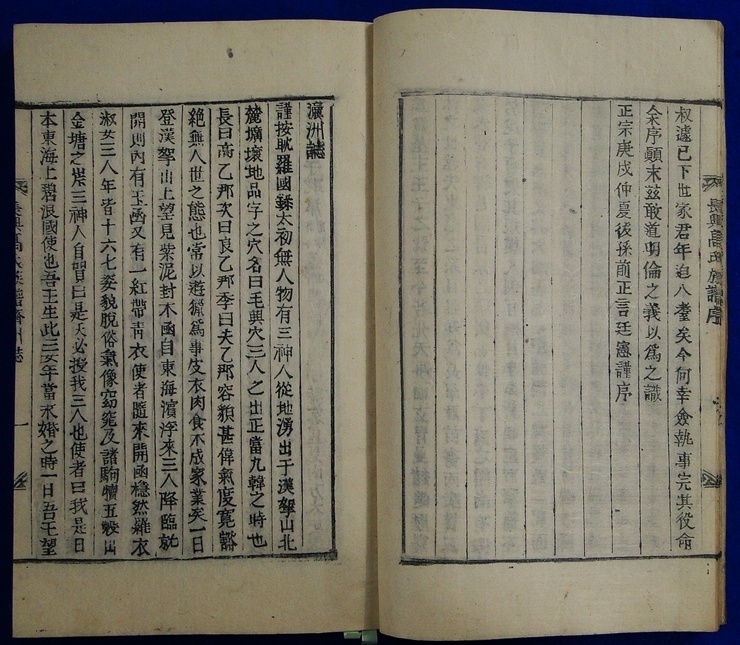 叔濾已下世家君年迫八耋矣今何幸僉執事完其役命
余序顚末玆敢道明倫之義以爲之識
正宗庚戌仲夏後孫前正言廷憲謹序
瀛洲誌
謹按耽羅國蘇太初無人物有三神人從地湧出于漢拏山北
麓壙壤地品字之穴名曰毛興穴三人之出正當九韓之時也
長曰高乙那次曰良乙那季曰夫乙那容貌甚偉氣度寬豁
絶無人世之態也常以遊獵爲事皮衣肉食不成家業矣一日
登漢拏山上望見紫泥封木函自東海濱浮來三人降臨就
開則內有玉函又有一紅帶靑衣使者隨來開函穩然羅衣
淑女三人年皆十六七姿貌脫俗氣像窈窕及諸駒犢五穀出
金塘之岸三神人自賀曰是天必授我三人也使者曰我是日
本東海上碧浪國使也吾王生此三女年當永婚之時一日吾王望